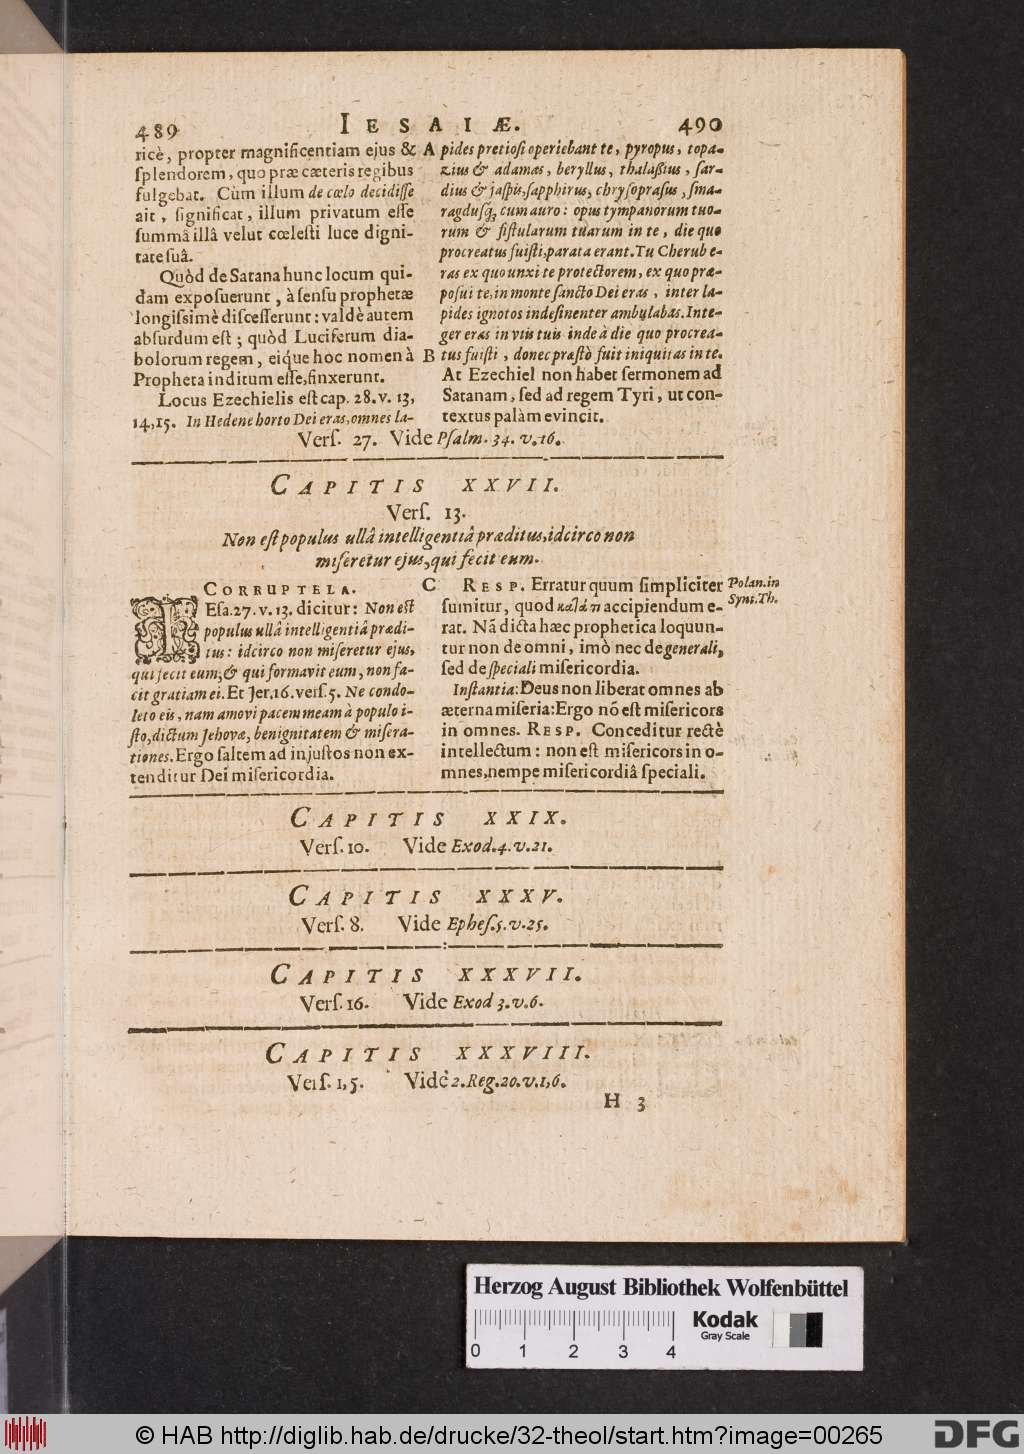 489 IESAIÆ. 490
ricè, propter magnificentiam ejus &
ſplendorem, quo præ cæteris regibus
fulgebat. Cùm illum de cœlo decidiſſe
ait, ſignificat, illum privatum eſſe
ſummâ illâ velut cœleſti luce digni-
tate ſuâ.
Quòd de Satana hunc locum qui-
dam expoſuerunt, à ſenſu prophetæ
longiſsimè diſceſſerunt: valdè autem
abſurdum eſt; quòd Luciferum dia-
bolorum regem, eíque hoc nomen à
Propheta inditum eſſe, finxerunt.
Locus Ezechielis eſt cap. 28. v. 13,
14,15. In Hedene horto Dei eras, omnes la-
A pides pretioſi operiebant te, pyropus, topa-
zius & adamas, beryllus, thalaſsius, ſar-
dius & jaſpis, ſapphirus, chryſopraſus, ſma-
ragduſq; cum auro: opus tympanorum tuo-
rum & fiſtularum tuarum in te, die quo
procreatus fuiſti, parata erant. Tu Cherub e-
ras ex quo unxi te protectorem, ex quo præ-
poſui te; in monte ſancto Dei eras, inter la-
pides ignotos indeſinenter ambulabas. Inte-
ger eras in viis tuis inde à die quo procrea-
B tus fuiſti, donec præſtò fuit iniquitas in te.
At Ezechiel non habet ſermonem ad
Satanam, ſed ad regem Tyri, ut con-
textus palàm evincit.
Verſ. 27. Vide Pſalm. 34. v. 16.
CAPITIS XXVII.
Verſ. 13.
Non eſt populus ullâ intelligentiâ præditus, idcirco non
miſeretur ejus, qui fecit eum.
CORRUPTELA.
Eſa. 27. v. 13. dicitur: Non eſt
populus ullâ intelligentiâ prædi-
tus: idcirco non miſeretur ejus,
qui fecit eum; & qui formavit eum, non fa-
cit gratiam ei. Et Jer. 16. verſ. 5. Ne condo-
leto eis, nam amovi pacem meam à populo i-
ſto, dictum Jehovæ, benignitatem & miſera-
tiones. Ergo ſaltem ad injuſtos non ex-
tenditur Dei miſericordia.
C RESP. Erratur quum ſimpliciter
ſumitur, quod κατά τι accipiendum e-
rat. Nã dicta hæc prophetica loquun-
tur non de omni, imò nec de generali,
ſed de ſpeciali miſericordia.
Inſtantia: Deus non liberat omnes ab
æterna miſeria: Ergo nō eſt miſericors
in omnes. RESP. Conceditur rectè
intellectum: non eſt miſericors in o-
mnes, nempe miſericordiâ ſpeciali.
Polan. in
Synt. Th.
CAPITIS XXIX.
Verſ. 10. Vide Exod. 4. v. 21.
CAPITIS XXXV.
Verſ. 8. Vide Epheſ. 5. v. 25.
CAPITIS XXXVII.
Verſ. 16. Vide Exod 3. v. 6.
CAPITIS XXXVIII.
Verſ. 1, 5. Vide 2. Reg. 20. v. 1, 6.
H 3
Herzog August Bibliothek Wolfenbüttel
Kodak
Gray Scale
0 1 2 3 4
© HAB http://diglib.hab.de/drucke/32-theol/start.htm?image=00265
DFG